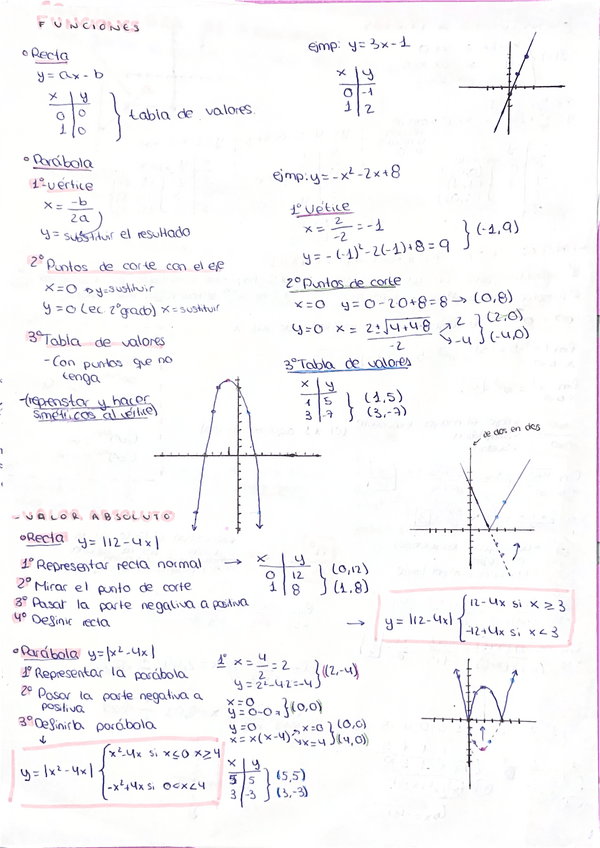 FUNCIONES
Recta
y = ax - b
x | y
0 | 0
1 | 0
tabla de valores.
ejmp: y = 3x - 1
x | y
0 | -1
1 | 2
Parábola
1º vértice
x = -b / 2a
y = substituir el resultado
2º Puntos de corte con el eje
x=0 → y=sustituir
y=0 (ec. 2ºgrado) x=sustituir
3º Tabla de valores
- Con puntos que no
tenga
-(reprenstar y hacer
simétricos al vértice)
ejmp: y = -x² - 2x + 8
1º Vétice
x = 2 / -2 = -1
y = -(-1)² - 2(-1) + 8 = 9
(-1, 9)
2º Puntos de corte
x=0 y = 0 - 2·0 + 8 = 8 → (0,8)
y=0 x = 2 ± √4+4·8 / -2
2
-4
(2,0)
(-4,0)
3º Tabla de valores
x | y
1 | 5
3 | -7
(1,5)
(3,-7)
de dos en dos
- VALOR ABSOLUTO
Recta y = |12 - 4x|
1º Representar recta normal →
2º Mirar el punto de corte
3º Pasar la parte negativa a positiva
4º Definir recta
x | y
0 | 12
1 | 8
(0,12)
(1,8)
→ y = |12 - 4x|
12 - 4x si x ≥ 3
-12 + 4x si x < 3
Parábola y = |x² - 4x|
1º Representar la parábola
2º Pasar la parte negativa a
positiva
3º Definirla parábola
y = |x² - 4x|
x² - 4x si x ≤ 0 x ≥ 4
-x² + 4x si 0 < x < 4
1º x = 4 / 2 = 2
y = 2² - 4·2 = -4
(2,-4)
x=0
y = 0 - 0
(0,0)
y=0
x = x(x-4)
x=0
x=4
(0,0)
(4,0)
x | y
5 | 5
3 | -3
(5,5)
(3,-3)